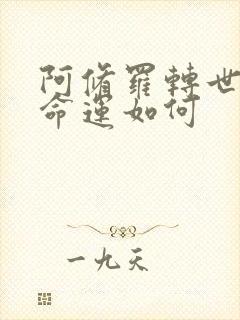 阿脩羅轉世
命運如何
一九天